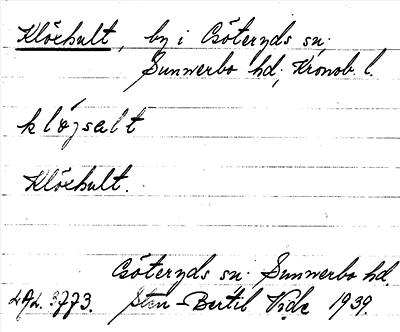 Klöxhult, by i Göteryds sn.
Sunnerbo hd, Kronob. l.
Klöxhult.
Göteryds sn. Sunnerbo hd.
ULMA 3773. Sten-Bertil Vide 1939.